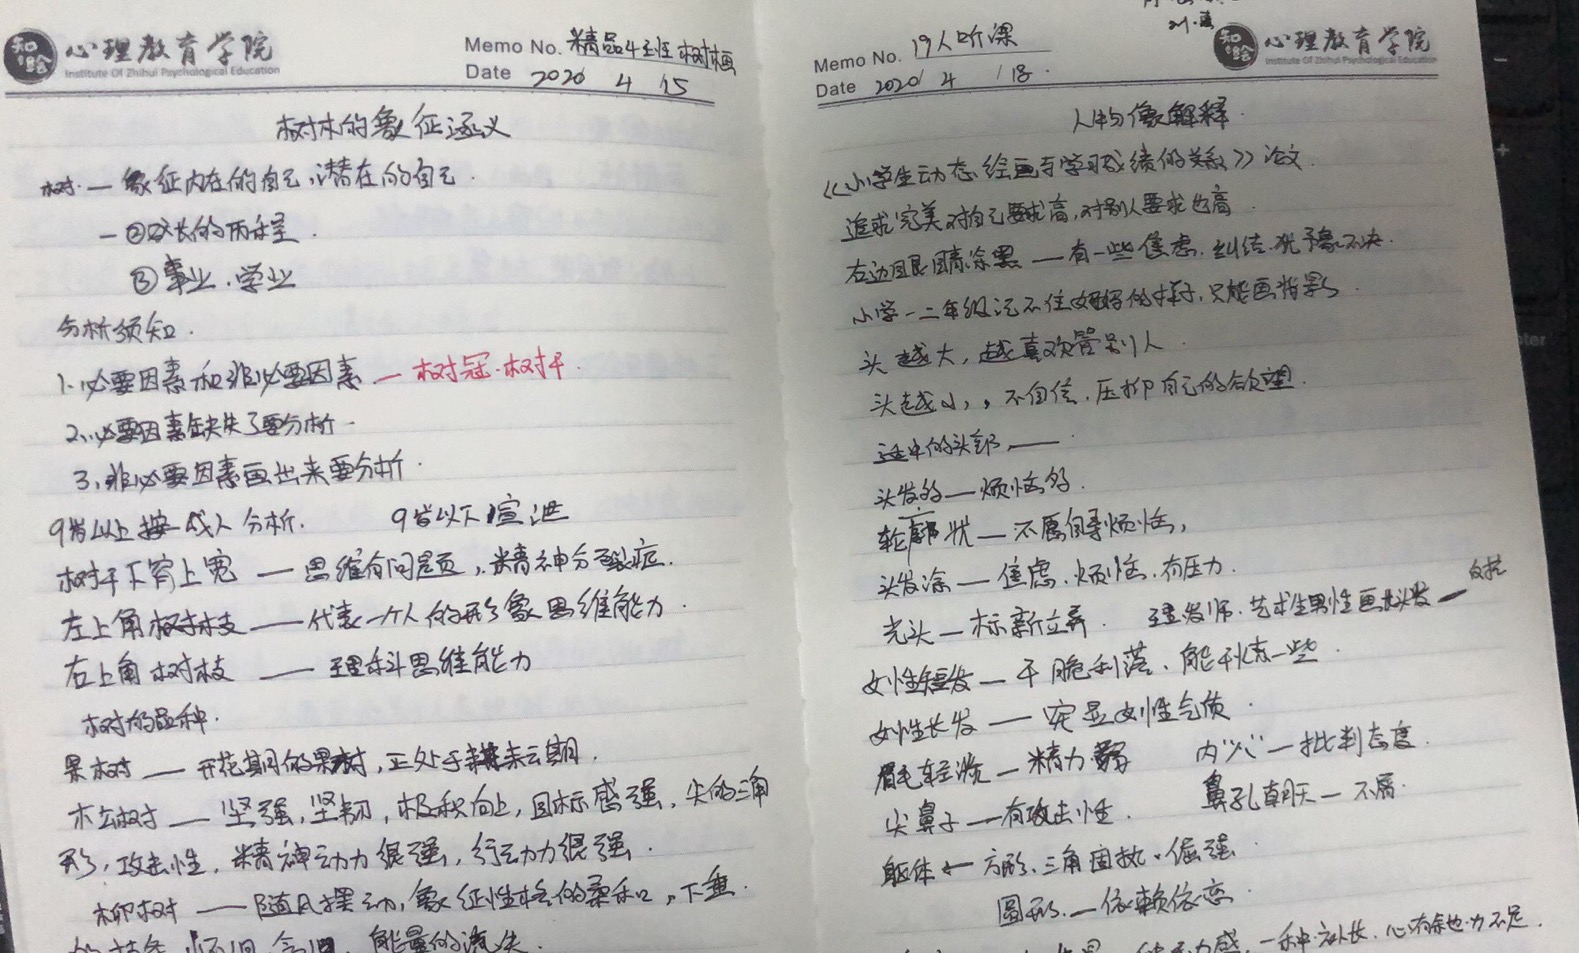 知绘 心理教育学院
Institute Of Zhihui Psychological Education
Memo No. 精品4班 树画
Date 2020 4 15
树木的象征涵义
树 — 象征内在的自己,潜在的自己.
— ②成长的历程.
③事业.学业
分析须知.
1.必要因素和非必要因素 — 树冠.树干.
2.必要因素缺失了要分析.
3.非必要因素画出来要分析.
9岁以上按成人分析. 9岁以下宣泄
树干下窄上宽 — 思维有问题,精神分裂症.
左上角树枝 — 代表一个人的形象思维能力.
右上角树枝 — 理科思维能力
树的品种.
果树 — 开花期的果树,正处于恋期.
松树 — 坚强,坚韧,积极向上,目标感强,尖的三角
形,攻击性,精神动力很强,行动力很强.
柳树 — 随风摆动,象征性格的柔和,下垂.
能量的流失.
知绘 心理教育学院
Institute Of Zhihui Psychological Education
Memo No. 19人听课
Date 2020 4 18.
人物像解释.
《小学生动态绘画与学习成绩的关系》论文.
追求完美对自己要求高,对别人要求也高.
右边眼睛涂黑 — 有一些焦虑.纠结.犹豫不决.
小学一二年级记不住妈妈的样子,只能画背影.
头越大,越喜欢管别人.
头越小,,不自信.压抑自己的欲望.
适中的头部, —
头发多 — 烦恼多.
轮廓状 — 不愿自寻烦恼,
头发涂 — 焦虑.烦恼.有压力.
光头 — 标新立异. 理发师.艺术生男性画出头发 —
女性短发 — 干脆利落.能干一些.
女性长发 — 突显女性气质.
眉毛轻淡 — 精力 内"八" — 批判态度.
尖鼻子 — 有攻击性. 鼻孔朝天 — 不屑.
躯体 ← 方形.三角固执.倔强
圆形. — 依赖依恋
力感.一种成长.心有余而力不足.